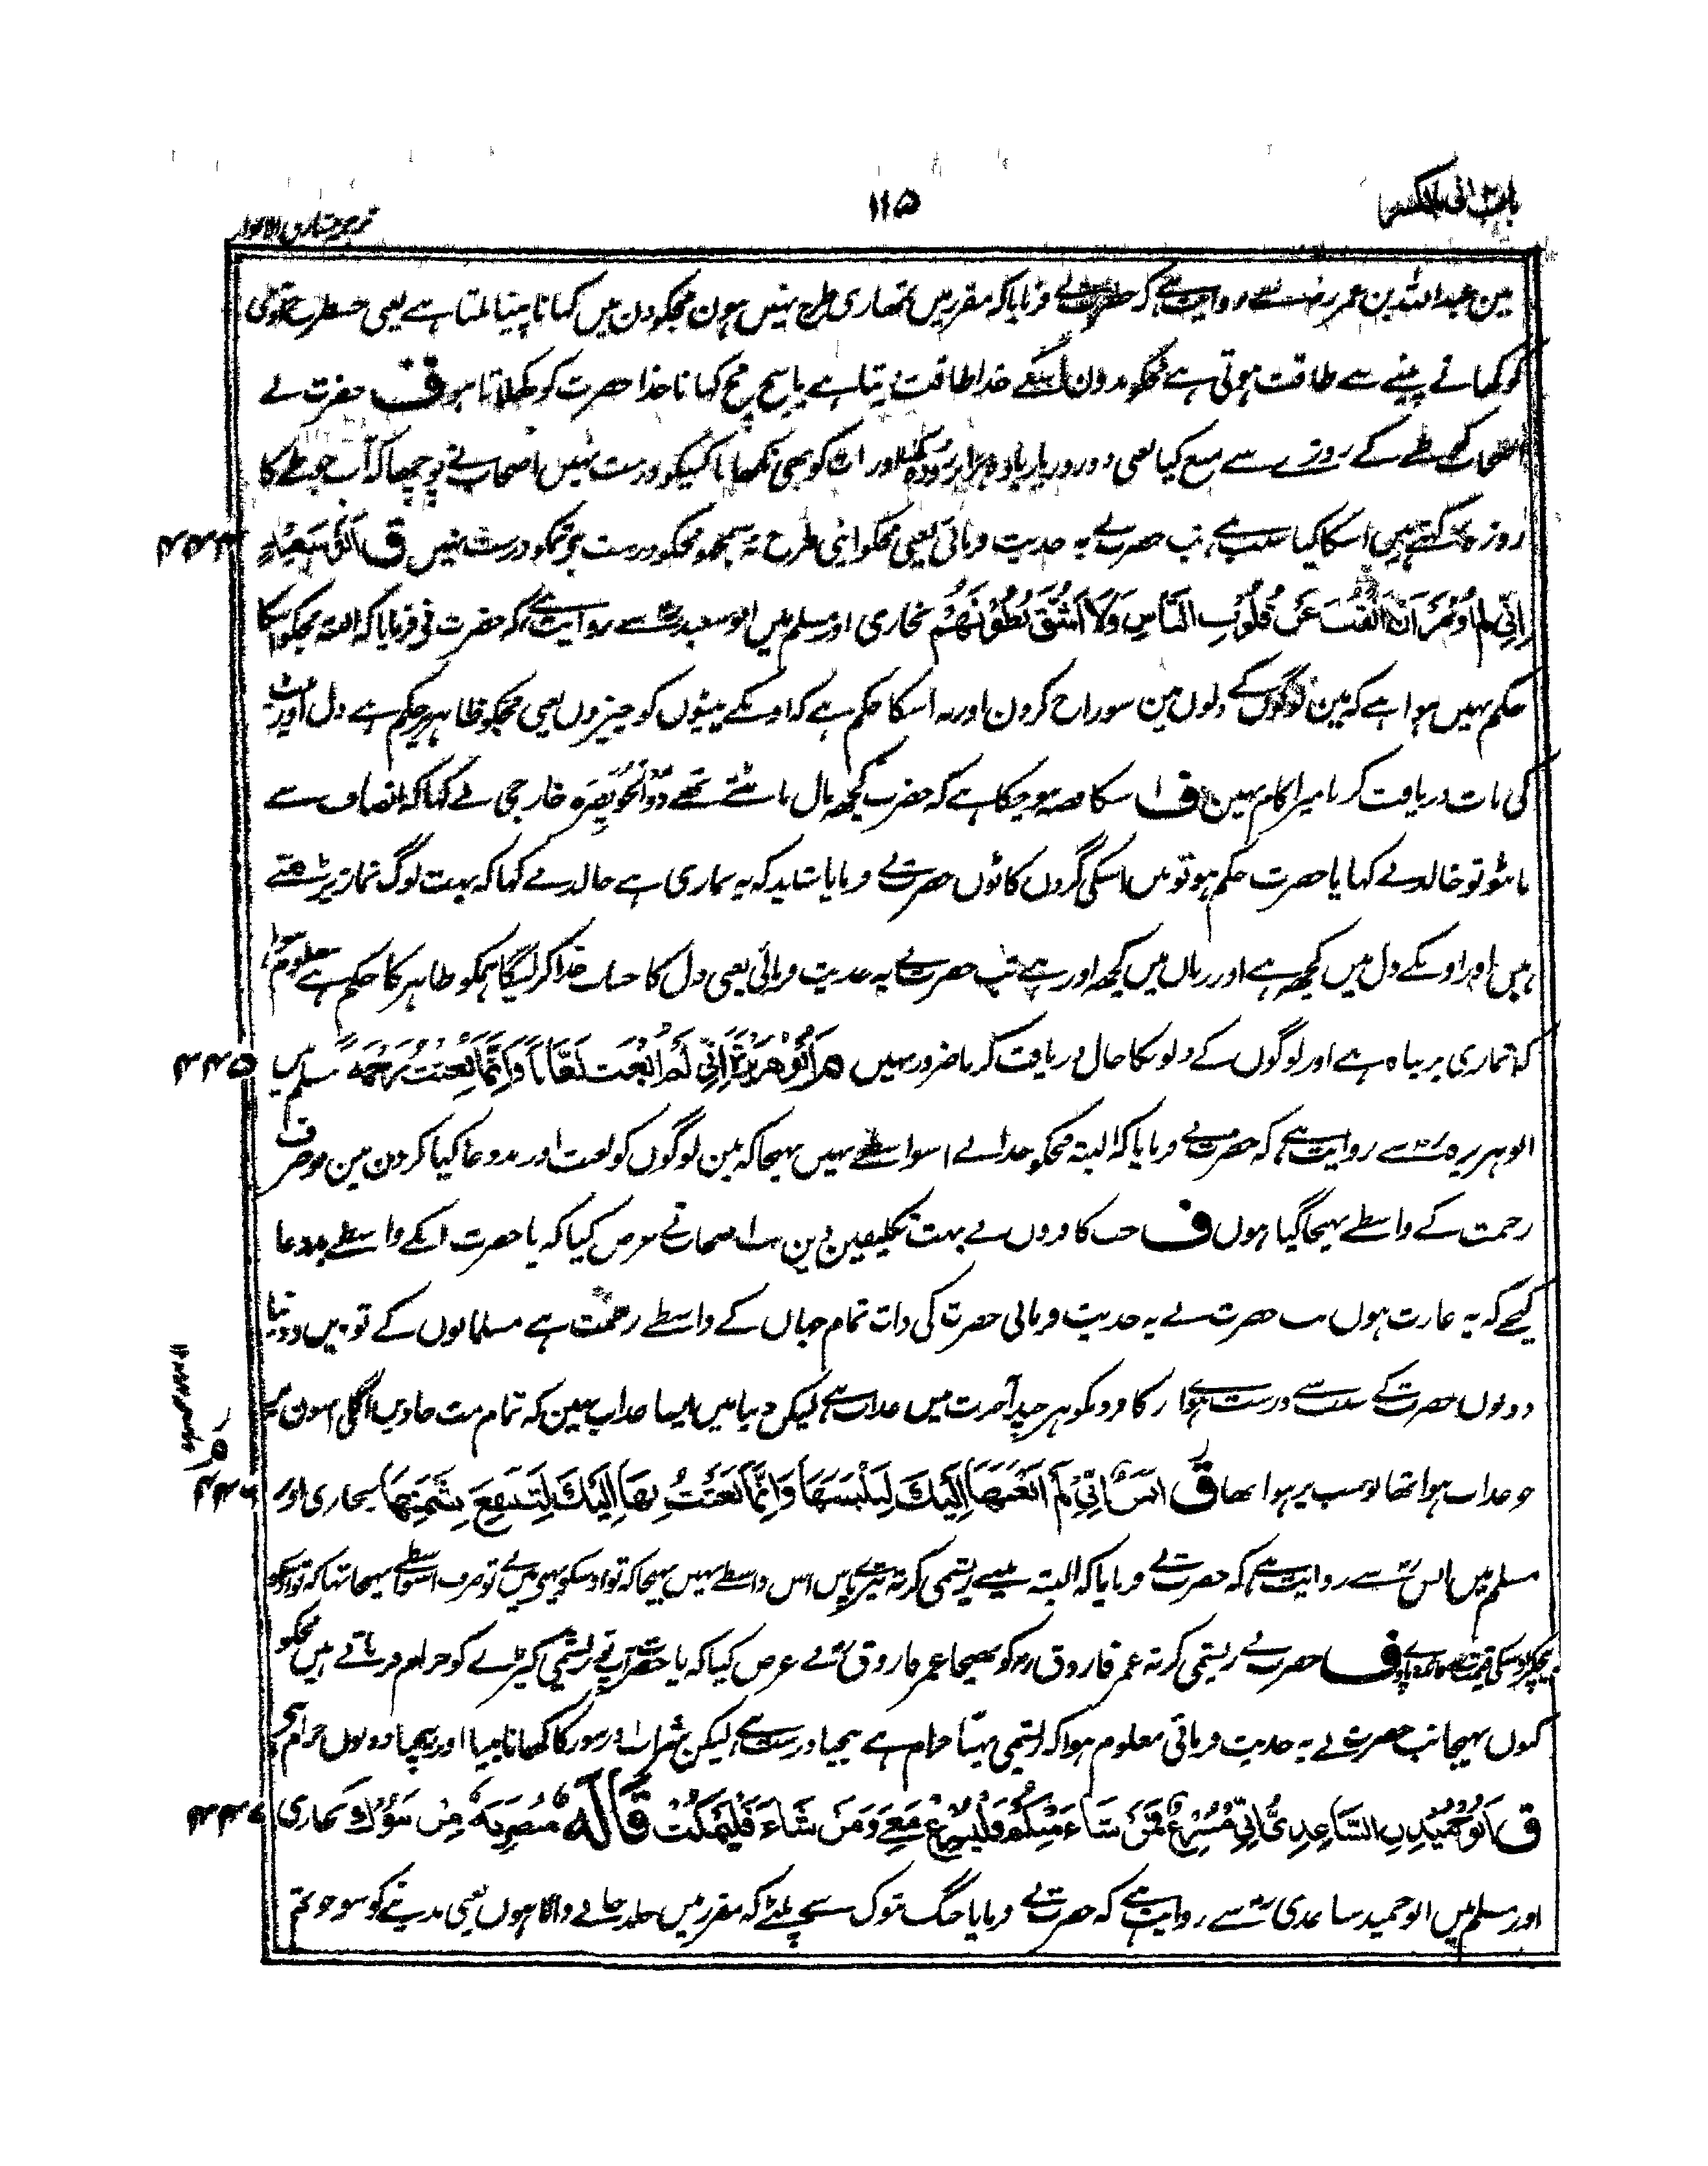 ۱۱۵
ترجمہ مشارق الانوار
مین عبد اللہ بن عمر رضـ سے روایت ہے کہ حضرت نے فرمایا کہ مقرر میں تمھاری طرح نہیں ہون مجکو دن میں کہانا پینا ملتا ہے یعنی جسطرح
کو کھانے پینے سے طاقت ہوتی ہے مجکو بدون اسکے خدا طاقت دیتا ہے یا سچ مچ کہانا خدا حضرت کو کھلاتا ہو ف حضرت نے
اصحاب کو طے کے روزے سے منع کیا یعنی دو روز یا زیادہ برابر روزہ اور رات کو بھی نکھانا کسیکو درست نہیں اصحاب نے پوچھا کہ آپ جو طے کا
روزہ رکھتے ہیں اسکا کیا سبب ہے تب حضرت نے یہ حدیث فرمائی یعنی مجکو اپنی طرح نہ سمجھو مجکو درست ہے تمکو درست نہیں ق ابو سعید
اِنِّي لم اُوْمَرْ اَنْ اَنْقُبَ عَنْ قُلُوْبِ النَّاسِ وَلَا اَشُقَّ بُطُوْنَهُمْ بخاری اور مسلم میں ابو سعید رضـ سے روایت ہے کہ حضرت نے فرمایا کہ البتہ مجکو اسکا
حکم نہیں ہوا ہے کہ مین لوگوں کے دلوں مین سوراخ کرون اور نہ اسکا حکم ہے کہ اونکے پیٹوں کو چیروں یعنی مجکو ظاہر پر حکم ہے دل اور پیٹ
کی بات دریافت کرنا میرا کام نہین ف اسکا قصہ ہو چکا ہے کہ حضرت کچھ مال بانٹتے تھے ذو الخویصرہ خارجی نے کہا کہ انصاف سے
بانٹو تو خالد نے کہا یا حضرت حکم ہو تو میں اسکی گردن کاٹوں حضرت نے فرمایا شاید کہ یہ نمازی ہے خالد نے کہا کہ بہت لوگ نماز پڑھتے
ہیں اور اونکے دل میں کچھ ہے اور زبان میں کچھ اور ہے تب حضرت نے یہ حدیث فرمائی یعنی دل کا حساب خدا کر لیگا ہمکو ظاہر کا حکم ہے معلوم ہوا
کہ نمازی پر پناہ ہے اور لوگوں کے دلونکا حال دریافت کرنا ضرور نہیں م اَبُوْ هُرَيْرَةَ اِنِّي لَمْ اُبْعَثْ لَعَّانًا وَّاِنَّمَا بُعِثْتُ رَحْمَةً مسلم میں
۴۴۵
ابو ہریرہ رضـ سے روایت ہے کہ حضرت نے فرمایا کہ البتہ مجکو خدا نے اسواسطے نہیں بھیجا کہ مین لوگوں کو لعنت اور بدوعا کیا کرون مین تو صرف
رحمت کے واسطے بھیجا گیا ہوں ف جب کافروں نے بہت تکلیفین دین تب اصحاب نے عرض کیا کہ یا حضرت انکے واسطے بددعا
کیجے کہ یہ غارت ہوں تب حضرت نے یہ حدیث فرمائی حضرت کی ذات تمام جہاں کے واسطے رحمت ہے مسلمانوں کے تو دین و دنیا
دونوں حضرت کے سبب سے درست ہوا ر کافرونکو ہر چند آخرت میں عذاب ہے لیکن دنیا میں ایسا عذاب نہین کہ تمام مٹ جاویں اگلی امتون میں
جو عذاب ہوا تھا تو سب پر ہوا تھا ق اَنَسٌ اِنِّيْ لَمْ اَبْعَثْهَا اِلَيْكَ لِتَلْبَسَهَا وَاِنَّمَا بَعَثْتُ بِهَا اِلَيْكَ لِتَنْتَفِعَ بِثَمَنِهَا بخاری اور
۴۴۶
مسلم میں انس رضـ سے روایت ہے کہ حضرت نے فرمایا کہ البتہ مینے ریشمی کرتہ تیرے پاس اس واسطے نہیں بھیجا کہ تو اوسکو پہنے میں نے تو صرف اسواسطے بھیجا تھا کہ تو اوسکو
بیچکر اوسکی قیمت سے فائدہ پاوے ف حضرت نے ریشمی کرتہ عمر فاروق رضـ کو بھیجا عمر فاروق رضـ نے عرض کیا کہ یا حضرت آپ نے ریشمی کپڑے کو حرام فرماتے ہیں مجکو
کیوں بھیجا تب حضرت نے یہ حدیث فرمائی معلوم ہوا کہ ریشمی پہننا حرام ہے بیچنا درست ہے لیکن شراب اور سور کا کھانا پینا اور بیچنا دونوں حرام ہے
ق اَبُوْ حُمَيْدِنِ السَّاعِدِيُّ اِنِّيْ مُسْرِعٌ فَمَنْ شَاءَ مِنْكُمْ فَلْيُسْرِعْ مَعِيَ وَمَنْ شَاءَ فَلْيَمْكُثْ قَالَهُ مُنْصَرِفَهُ مِنْ تَبُوْكَ بخاری
۴۴۷
اور مسلم میں ابو حمید ساعدی رضـ سے روایت ہے کہ حضرت نے فرمایا جنگ تبوک سے پلٹے کہ مقرر میں جلد جانے والا ہوں یعنی مدینے کو سو جو تم